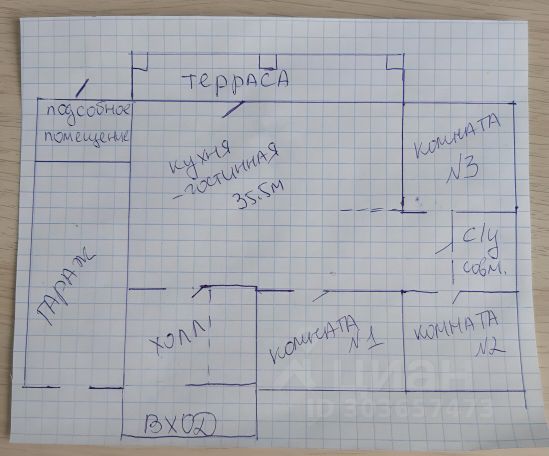 терраса
подсобное
помещение
кухня
-гостинная
35.5м
комната
N3
с/у
совм.
гараж
холл
комната
N1
комната
N2
вход
циан
ID 303637473